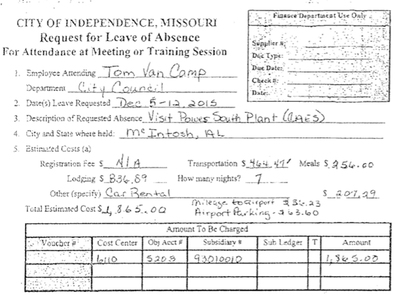 CITY OF INDEPENDENCE, MISSOURI
Request for Leave of Absence
For Attendance at Meeting or Training Session
Finance Department Use Only
Supplier #:
Doc Type:
Due Date:
Check #:
Date:
1. Employee Attending Tom Van Camp
Department City Council
2. Date(s) Leave Requested Dec 5-12, 2015
3. Description of Requested Absence Visit Power South Plant (CAES)
4. City and State where held: McIntosh, AL
5. Estimated Costs (a)
Registration Fee $ N/A Transportation $ 464.49 Meals $ 256.00
Lodging $ 836.89 How many nights? 7
Other (specify) Car Rental $ 207.29
Mileage to airport $ 36.23
Total Estimated Cost $ 1,865.00 Airport Parking - $ 63.60
Amount To Be Charged
Voucher # Cost Center Obj Acct # Subsidiary # Sub Ledger T Amount
6110 5203 93010010 1,865.00